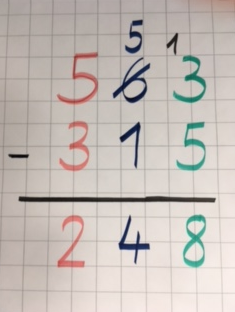 5 1
5 6 3
- 3 1 5
2 4 8